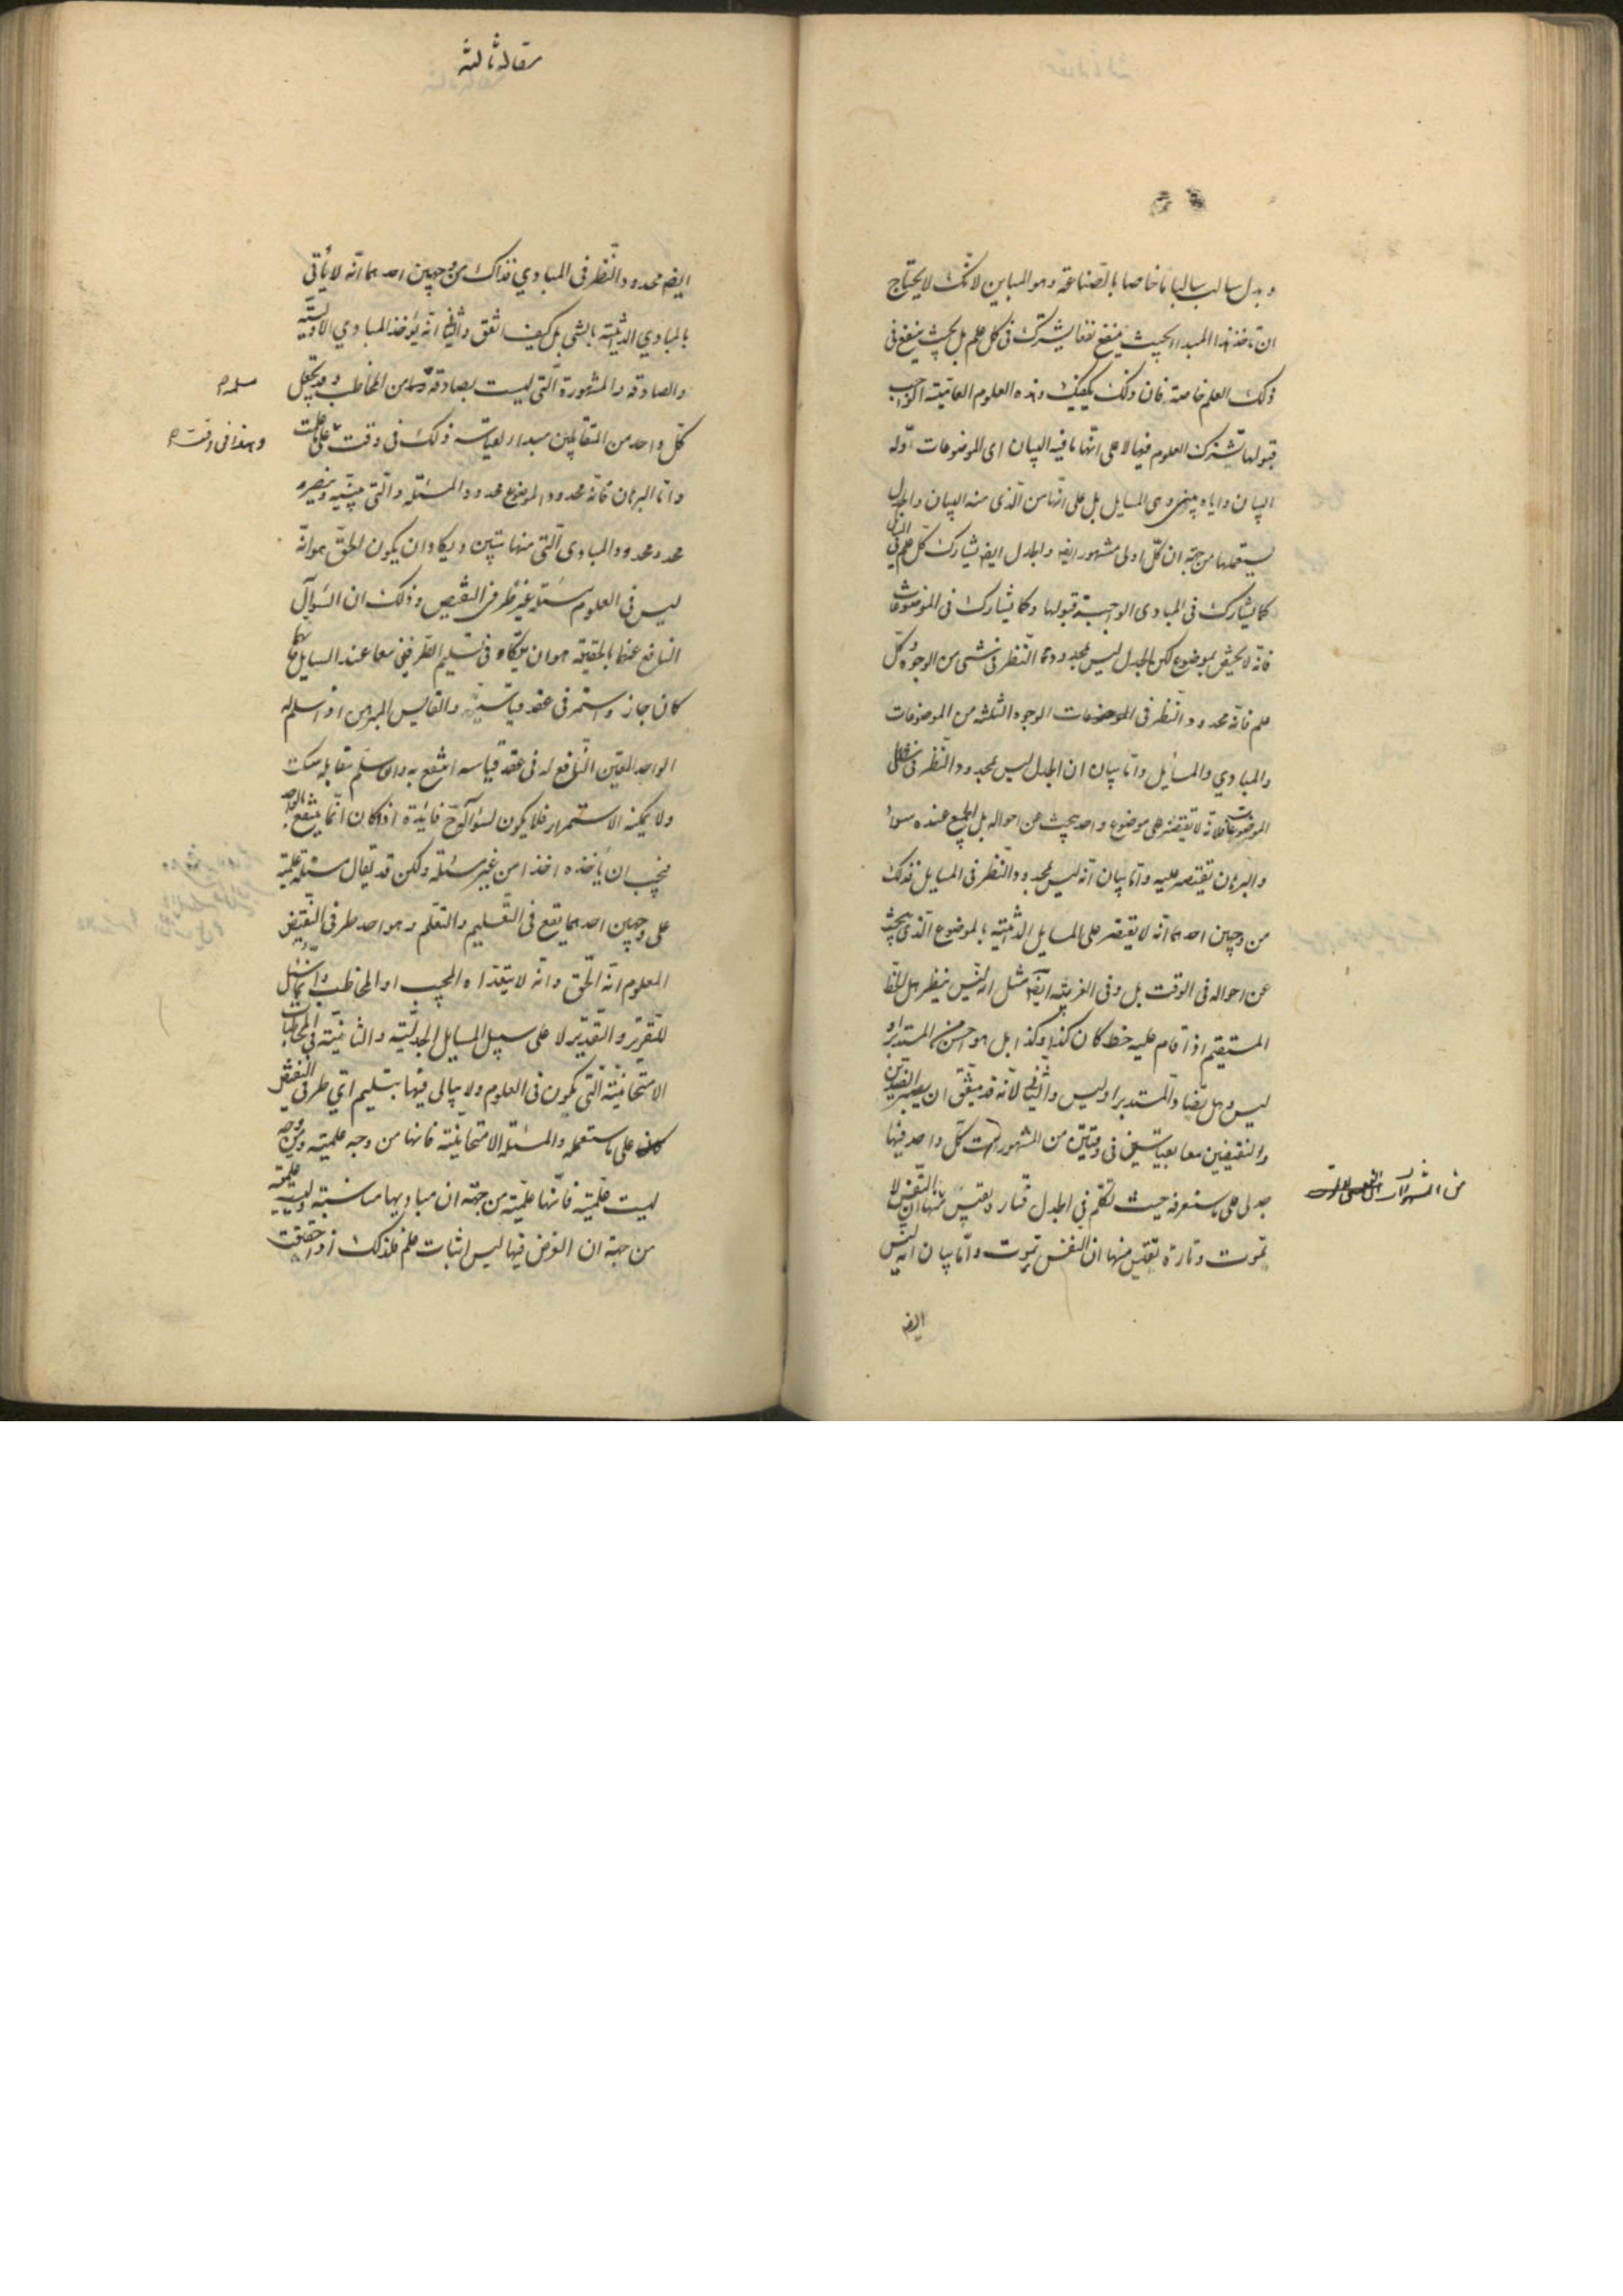 وبدل سالب سالبا ما خاصا بالصناعة وهو المباين لانك لا يحتاج
ان تاخذ هذا المبدا بحيث ينفع نفعا يشترك فى كل علم بل بحيث ينفع فى
ذلك العلم خاصة فان ذلك يكفيك وهذه العلوم العامية الواجب
قبولها تشترك العلوم فيها لا على انها ما فيه البيان اى الموضوعات اوله
البيان واياه وهى المسايل بل على انها من الذى منه البيان والجدل
يستعملها من جهة ان كل اولى مشهور ايضا والجدل ايضا يشارك كل علم فى المسايل
كما يشارك فى المبادى الواجبة قبولها وكما يشارك فى الموضوعات
فانه لا يختص بموضوع لكن الجدل ليس محدود النظر فى شىء من الوجوه وكل
علم فانه محدود النظر فى الموضوعات الوجوه الثلثة من الموضوعات
والمبادي والمسايل واما بيان ان الجدل ليس بمحدود النظر فى
الموضوعات فلانه لا يقتصر على موضوع واحد يبحث عن احواله بل الجميع عنده سواء
والبرهان يقتصر عليه واما بيان انه ليس بمحدود النظر فى المسايل فذلك
من وجهين احدهما انه لا يقتصر على المسايل الذاتية بالموضوع الذى يبحث
عن احواله فى الوقت بل وفى الغريبة ايضا مثل انه ليس ينظر هل الخط
المستقيم اذا قام عليه خط كان كذا وكذا بل هو احسن من المستدير او
ليس وهل يضاد المستدير او ليس والثانى لانه قد يتفق ان يصير الضدين
والنقيضين معا بقياسين فى وقتين من المشهورات كل واحد فيها
جدلى على ما ستعرفه حيث نتكلم فى الجدل فتارة يقيس منها ان النفس لا
تموت وتارة تقيس منها ان النفس تموت واما بيان انه ليس
ايضا
من المشهورات
مقاله ثالثه
ايضا محدود النظر فى المبادي فذاك من وجهين احدهما انه لا يأتى
بالمبادي الذاتية بالشى بل كيف اتفق والثانى انه يؤخذ المبادي الاولية
والصادقه والمشهورة التى ليست بصادقة من المخاطب وقد يجعل
مسلمة
كل واحد من المتقابلين مبدا لقياسه ذلك فى وقت على ما علمت
وهذا فى وقت
واما البرهان فانه محدود الموضوع محدود المسئله والتى يبينه وينصره
محدود محدود المبادى التى منها يتبين ويكاد ان يكون الحق هو انه
ليس فى العلوم مسئلة عن طرفى النقيض وذلك ان السؤال
النافع عنهما بالحقيقة هو ان يتكاه فى تسليم الطرفين معا عند السايل
كان جاز واستمر فى عقد قياسه والقايس المبرهن اذا سلم له
الواحد المعين النافع له فى عقد قياسه انتفع به وان سلم مقابله سكت
ولا يمكنه الاستمرار فلا يكون لسؤاله ح فايدة اذا كان انما ينتفع بالواحد
فيجب ان يأخذه اخذا من غير مسئلة ولكن قد يقال مسئلة علمية
على وجهين احدهما يقع فى التعليم والتعلم وهو احد طرفى النقيض
المعلوم انه الحق وانه لا يتعداه المجيب او المخاطب وانما يسئل
للتقرير والتقدير لا على سبيل المسايل الجدلية والثانية فى المخاطبات
الامتحانية التى يكون فى العلوم ولا يبالى فيها بتسليم اي طرفى النقيض
كان على ما ستعلمه والمسئلة الامتحانية فانها من وجه علمية ومن وجه
ليست علمية فانها علمية من جهة ان مباديها مناسبة وليست علمية
من جهة ان الغرض فيها ليس اثبات علم فلذلك اذا حققت